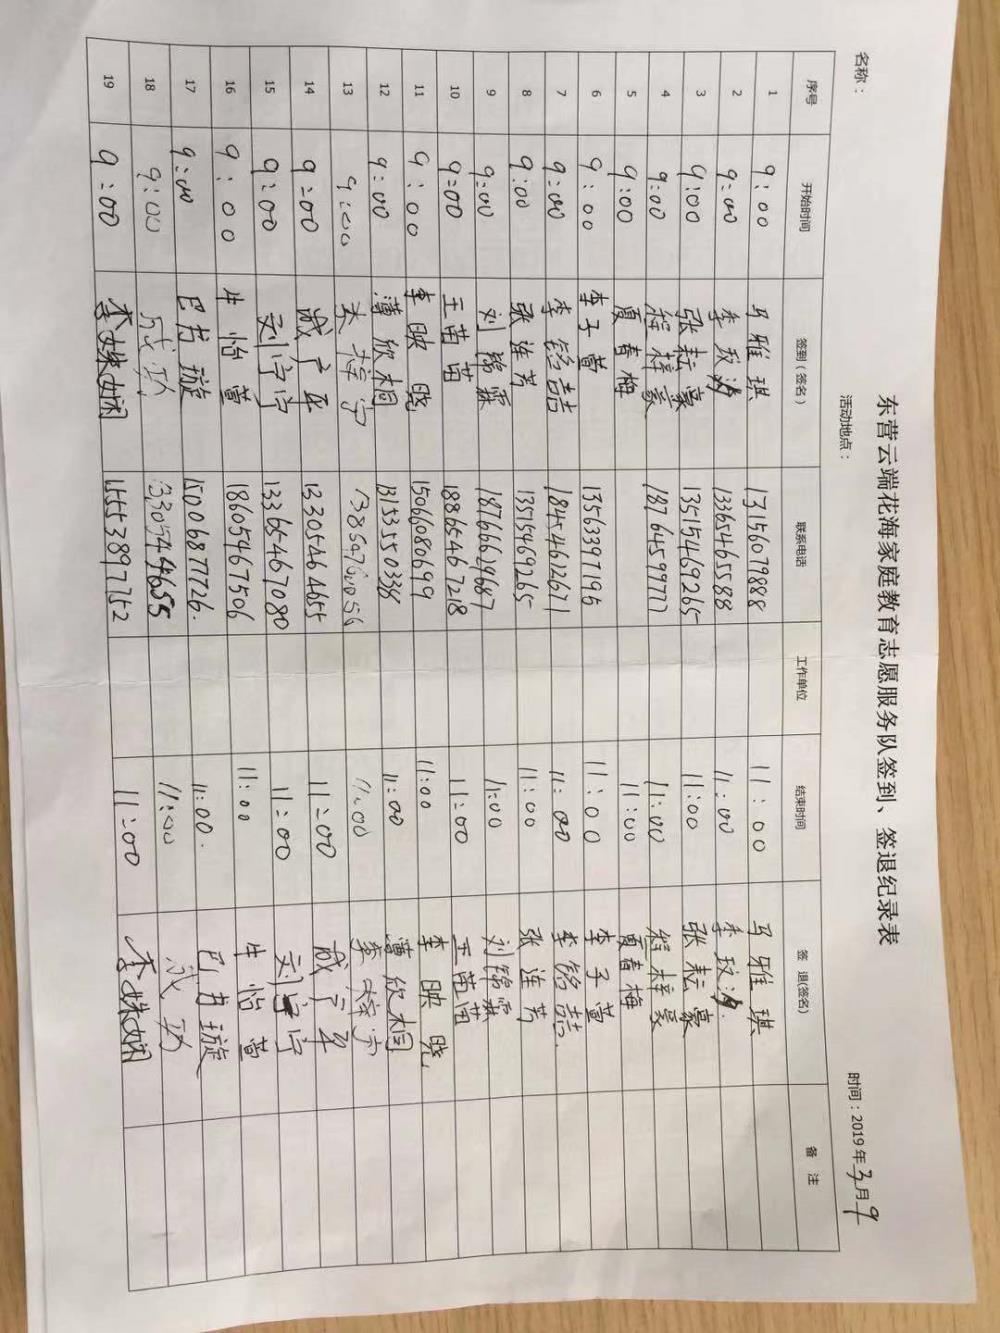 东营云端花海家庭教育志愿服务队签到、签退纪录表
名称： 活动地点： 时间：2019年3月9
序号 开始时间 签到（签名） 联系电话 工作单位 结束时间 签 退(签名) 备 注
1 9:00 马雅琪 13156079888 11:00 马雅琪
2 9:00 季玟汐 13365465588 11:00 季玟汐
3 9:00 张耘豪 13515469265 11:00 张耘豪
4 9:00 程梓豪 18764597777 11:00 程梓豪
5 9:00 夏春梅 11:00 夏春梅
6 9:00 李子萱 13563397195 11:00 李子萱
7 9:00 李铭喆 18454612671 11:00 李铭喆
8 9:00 张连芳 13515469265 11:00 张连芳
9 9:00 刘锦霖 18766629687 11:00 刘锦霖
10 9:00 王苗苗 18865467218 11:00 王苗苗
11 9:00 李映晓 15066080699 11:00 李映晓
12 9:00 薄欣桐 13153550338 11:00 薄欣桐
13 9:00 11:00
14 9:00 成广平 13305464655 11:00 成广平
15 9:00 刘宁宁 13365467080 11:00 刘宁宁
16 9:00 牛怡萱 18605467506 11:00 牛怡萱
17 9:00 巴书璇 15006877726. 11:00. 巴书璇
18 9:00 成功 13305464655 11:00 成功
19 9:00 李姝娴 15553897752 11:00 李姝娴